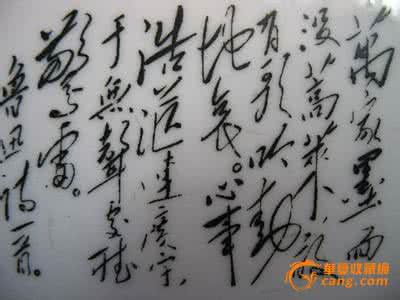 萬家墨面
没蒿莱，敢
有歌吟動
地哀。心事
浩茫連廣宇，
于無聲處聽
驚雷。
魯迅詩一首。
華夏收藏網